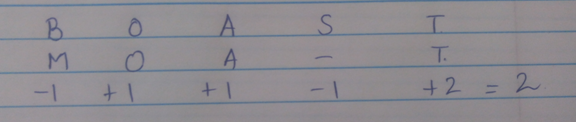 B O A S T.
M O A – T.
-1 +1 +1 -1 +2 = 2.